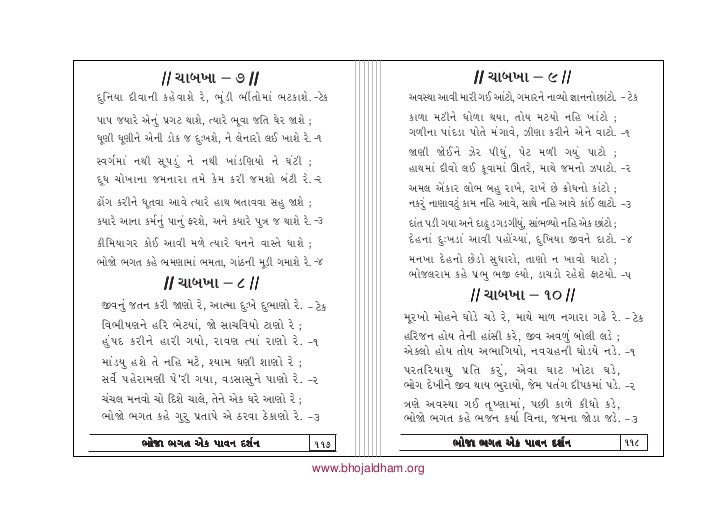 // ચાબખા – ૭ //
દુનિયા દીવાની કહેવાશે રે, ભૂંડી ભીંતોમાં ભટકાશે. -ટેક
પાપ જયારે એનું પ્રગટ થાશે, ત્યારે ભૂવા જતિ ઘેર જાશે ;
ધૂણી ધૂણીને એની ડોક જ દુઃખશે, ને લેનારો લઈ ખાશે રે. -૧
સ્વર્ગમાં નથી સૂપડું ને નથી ખાંડણિયો ને ઘંટી ;
દૂધ ચોખાના જમનારા તમે કેમ કરી જમશો બંટી રે. -૨
ઢોંગ કરીને ધૂતવા આવે ત્યારે હાથ બતાવવા સહુ જાશે ;
કયારે આના કર્મનું પાનું ફરશે, અને કયારે પુત્ર જ થાશે રે. -૩
કીમિયાગર કોઈ આવી મળે ત્યારે ધનને વાસ્તે ધાશે ;
ભોજો ભગત કહે ભ્રમણામાં ભમતા, ગાંઠની મૂડી ગમાશે રે. -૪
// ચાબખા – ૮ //
જીવનું જતન કરી જાણો રે, આત્મા દુઃખે દુભાણો રે. - ટેક
વિભીષણને હરિ ભેટયાં, જો સાચવિયો ટાણો રે ;
હુંપદ કરીને હારી ગયો, રાવણ ત્યાં રાણો રે. -૧
માંડયુ હશે તે નહિ મટે, શ્યામ ઘણી શાણો રે ;
સર્વે પહેરામણી પે'રી ગયા, વડસાસુને પાણો રે. -૨
ચંચલ મનવો ચો દિશે ચાલે, તેને એક ઘરે આણો રે ;
ભોજો ભગત કહે ગુરુ પ્રતાપે એ ઠરવા ઠેકાણો રે. -૩
ભોજા ભગત એક પાવન દર્શન ૧૧૭
// ચાબખા – ૯ //
અવસ્થા આવી મારી ગઈ આંટો, ગમારને નાવ્યો જ્ઞાનનો છાંટો. - ટેક
કાળા મટીને ધોળા થયા, તોય મટયો નહિ ખાંટો ;
ગળીના પાંદડા પોતે મંગાવે, ઝીણા કરીને એને વાટો. -૧
જાણી જોઈને ઝેર પીધું, પેટ મળી ગયું પાટો ;
હાથમાં દીવો લઈ કૂવામાં ઊતરે, માથે જમનો ઝપાટો. -૨
અમલ એંકાર લોભ બહુ રાખે, રાખે છે ક્રોધનો કાંટો ;
નકરું નાણાવટું કામ નહિ આવે, સાથે નહિ આવે કાંઈ લાટો. -૩
દાંત પડી ગયા અને દાઢું ડગડગીયું, સાંભળ્યો નહિ એક છાંટો ;
દેહનાં દુઃખડાં આવી પહોંચ્યાં, દુખિયા જીવને દાટો. -૪
મનખા દેહનો છેડો સુધારો, તાણો ન ખાવો ઘાટો ;
ભોજલરામ કહે પ્રભુ ભજી લ્યો, ડાચડો રહેશે ફાટયો. -૫
// ચાબખા – ૧૦ //
મૂરખો મોહને ઘોડે ચડે રે, માથે માળ નગારા ગઢે રે. - ટેક
હરિજન હોય તેની હાંસી કરે, જીવ અવળું બોલી લડે ;
એકલો હોય તોય અભાગિયો, નવગ્રહની ઘોડયે નડે. -૧
પરતરિયાથુ પ્રતિ કરું, એવા ઘાટ ખોટા ઘડે,
ભોગ દેખીને જીવ થાય ભુરાયો, જેમ પતંગ દીપકમાં પડે. -૨
ત્રણે અવસ્થા ગઈ તૃષ્ણામાં, પછી કાળે કીધો કડે,
ભોજો ભગત કહે ભજન કર્યા વિના, જમના જોડા જડે. -૩
ભોજા ભગત એક પાવન દર્શન ૧૧૮
www.bhojaldham.org